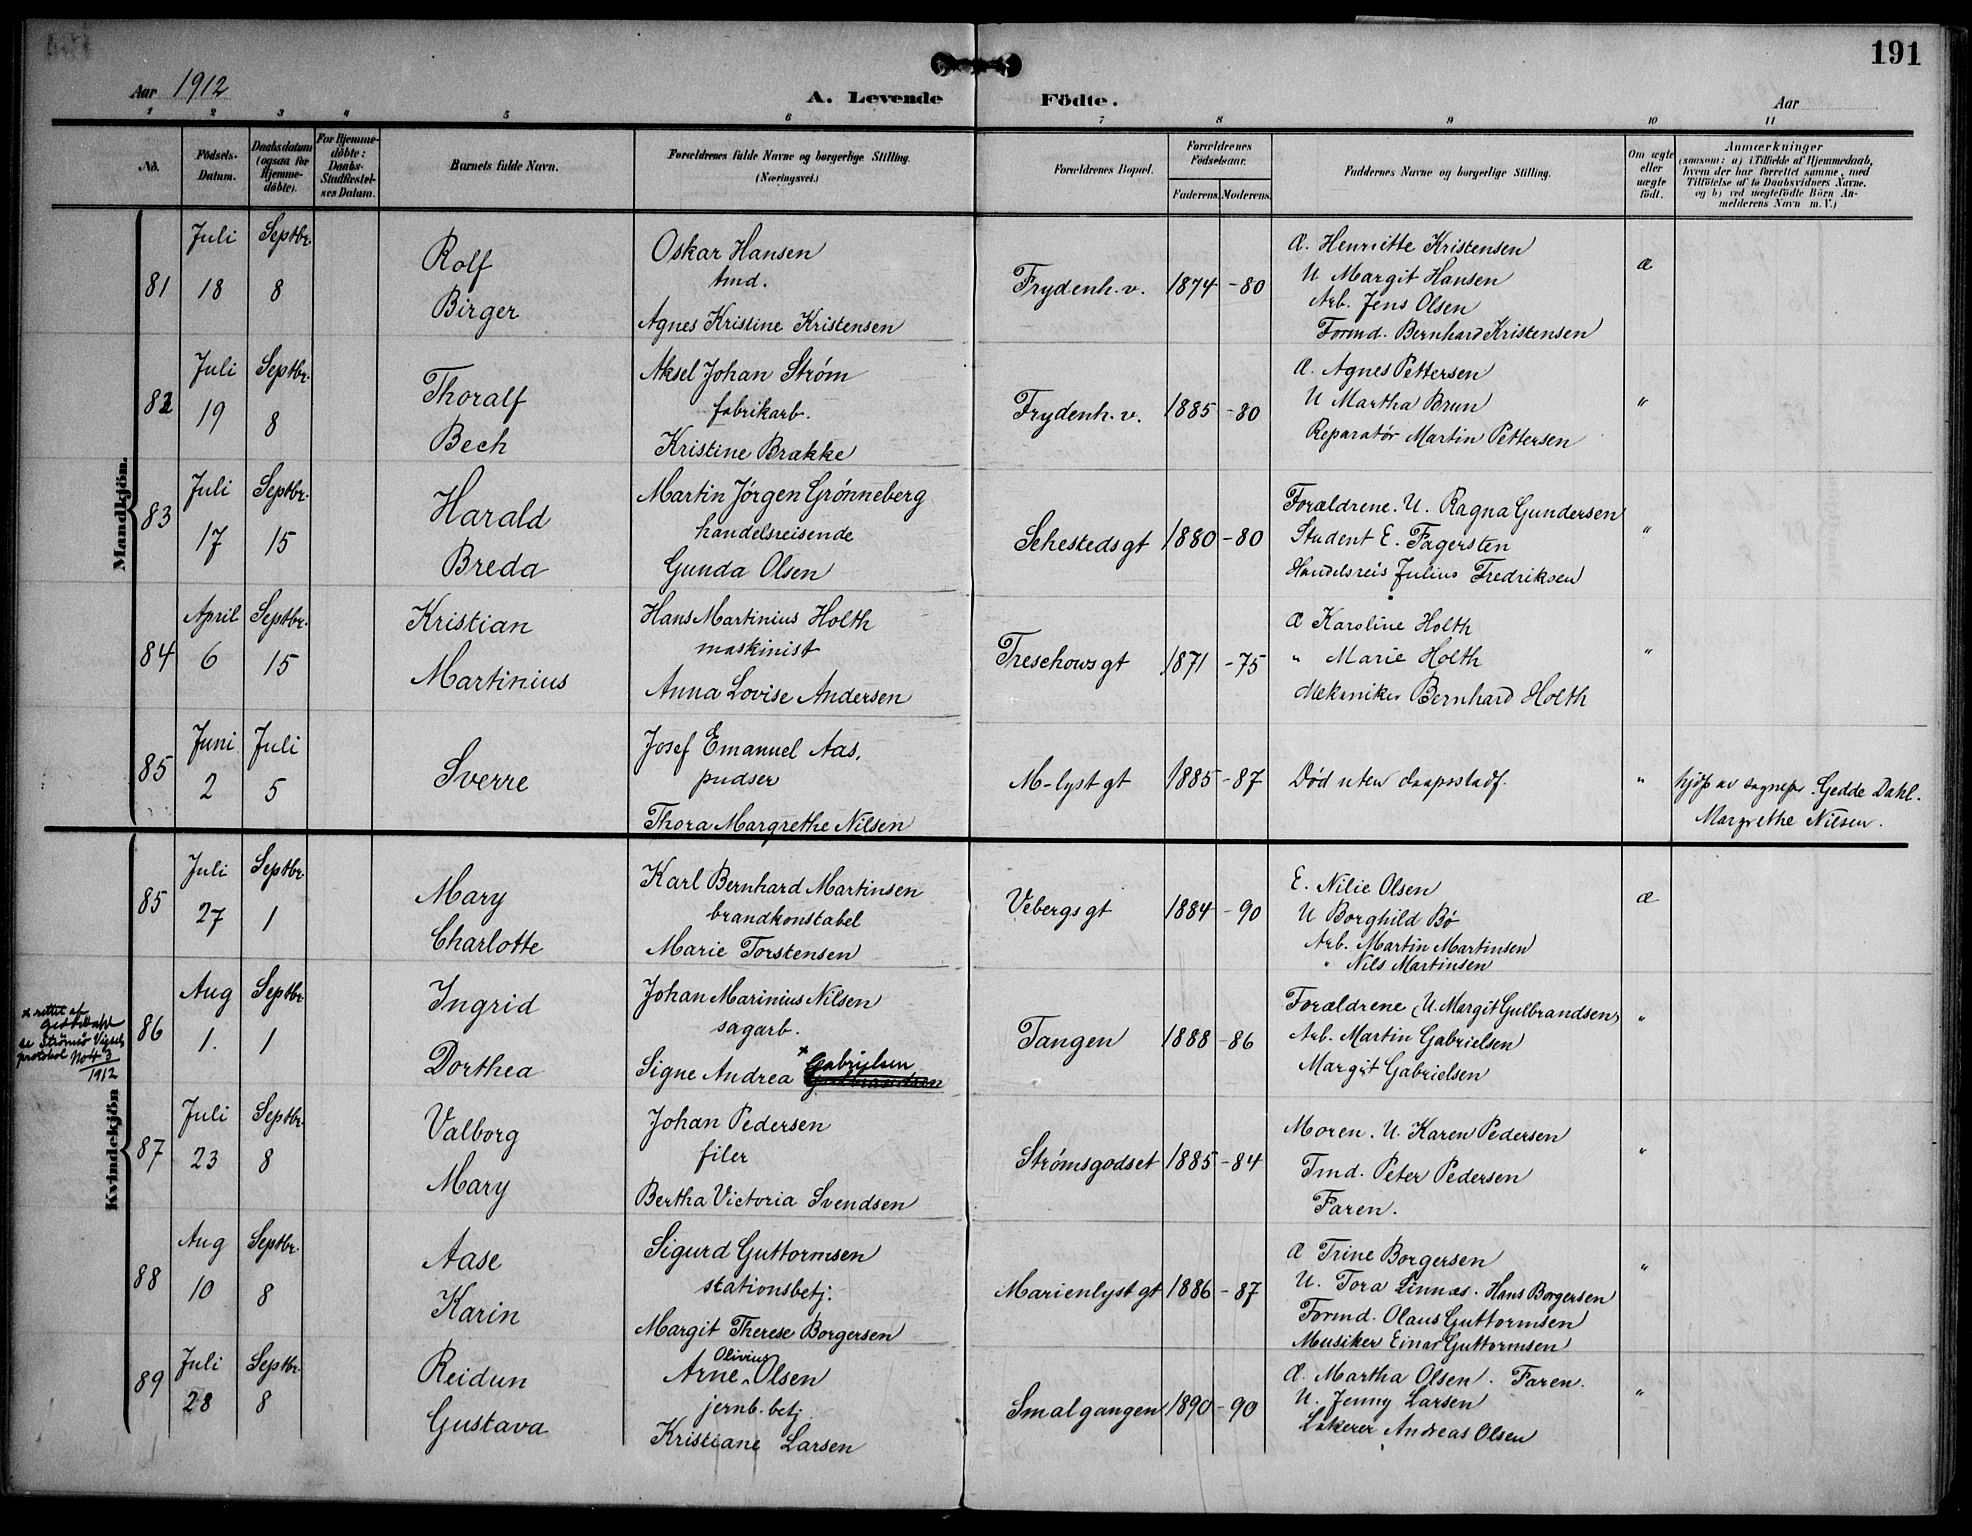 191
Aar 1912
A. Levende Födte.
Aar
1 2 3 4 5 6 7 8 9 10 11
No.
Födsels-Datum.
Daabsdatum (ogsaa for Hjemme-döbte).
For Hjemme-döbte: Daabs-Stadfæstel-ses Datum.
Barnets fulde Navn.
Forældrenes fulde Navne og borgerlige Stilling. (Næringsvei.)
Forældrenes Bopæl.
Forældrenes Födselsaar.
Faderens. Moderens.
Faddernes Navne og borgerlige Stilling.
Om ægte eller uægte födt.
Anmærkninger
(saasom: a) i Tilfælde af Hjemmedaab, hvem der har forrettet samme, med Tilföielse af to Daabsvidners Navne. og b) ved uægtefödte Börn An-melderens Navn m. V.)
Mandkjön.
81
Juli 18
Septbr. 8
Rolf
Birger
Oskar Hansen
tmd.
Agnes Kristine Kristensen
Frydenh. v.
1874 -80
Æ. Henriette Kristensen
U Margit Hansen
Arb. Jens Olsen
Formd. Bernhard Kristensen
æ
82
Juli 19
Septbr. 8
Thoralf
Bech
Aksel Johan Strøm
fabrikarb.
Kristine Brakke
Frydenh. v.
1885 -80
Æ. Agnes Pettersen
U Martha Brun
Reparatør Martin Pettersen
"
83
Juli 17
Septbr. 15
Harald
Breda
Martin Jörgen Grönneberg
handelsreisende
Gunda Olsen
Sehestedsgt
1880 -80
Forældrene. U. Ragna Gundersen
Student E. Fagersten
Handelsreis Julius Fredriksen
"
84
April 6
Septbr. 15
Kristian
Martinius
Hans Martinius Holth
maskinist
Anna Lovise Andersen
Treschowsgt
1871 -75
Æ Karoline Holth
" Marie Holth
Mekaniker Bernhard Holth
"
85
Juni 2
Juli 5
Sverre
Josef Emanuel Aas,
pudser
Thora Margrethe Nilsen
M-lyst gt
1885 -87
Død uten daapsstadf.
"
hjdp av sognepr. Gedde Dahl.
Margrethe Nilsen.
Kvindekjön
85
Juli 27
Septbr. 1
Mary
Charlotte
Karl Bernhard Martinsen
brandkonstabel
Marie Torstensen
Vebergsgt
1884 -90
E. Nilie Olsen
U Borghild Bø
Arb. Martin Martinsen
" Nils Martinsen
æ
x rettet af
Gedde Dahl
se Strömsö Vigsels
protokol No 43
1912
86
Aug 1.
Septbr. 1
Ingrid
Dorthea
Johan Marinius Nilsen
sagarb.
Signe Andrea x Gabrielsen
Tangen
1888 -86
Forældrene, U. Margit Gulbrandsen,
Arb. Martin Gabrielsen
Margit Gabrielsen
"
87
Juli 23
Septbr. 8
Valborg
Mary
Johan Pedersen
filer
Bertha Victoria Svendsen
Strømsgodset
1885 -84
Moren. U. Karen Pedersen
Tmd. Peter Pedersen
Faren.
"
88
Aug 10
Septbr. 8
Aase
Karin
Sigurd Guttormsen
stationsbetj.
Margit Therese Borgersen
Marienlyst gt
1886 -87
Æ Trine Borgersen
U. Tora Linnæs. Hans Borgersen
Formd. Olaus Guttormsen
Musiker Einar Guttormsen
"
89
Juli 28
Septbr. 8
Reidun
Gustava
Arne Olivius Olsen
jernb. betj.
Kristiane Larsen
Smalgangen
1890 -90
Æ. Martha Olsen. Faren.
U. Jenny Larsen
Lakerer Andreas Olsen
"